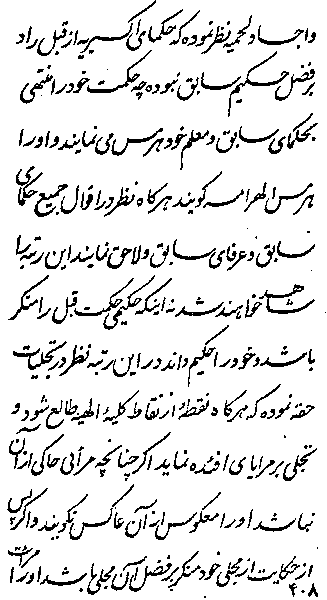 و اجساد لحمیه نظر نموده که حکمای اکسیریه از قبل راد
بر فضل حکیم سابق نبوده چه حکمت خود را منتهی
بحکمای سابق و معلم خود هرمس می نمایند و او را
هرمس الهرامسه گویند هر گاه نظر در اقوال جمیع حکمای
سابق و عرفای سابق و لاحق نمایند این رتبه را
مشاهده خواهند شد نه اینکه حکیمی حکمت قبل را منکر
باشد و خود را حکیم داند در این رتبه نظر در تجلیات
حقه نموده که هر گاه نقطهٔ از نقاط کلیهٔ الهیه طالع شود و
تجلی بر مرایای افئده نماید اگر چنانچه مرآتی حاکی از آن
نباشد او را معکوس از آن عاکس نگویند و اگر پس
از حکایت از مجلی خود منکر بر فضل آن مجلی باشد او را مرآت
۴۰۸